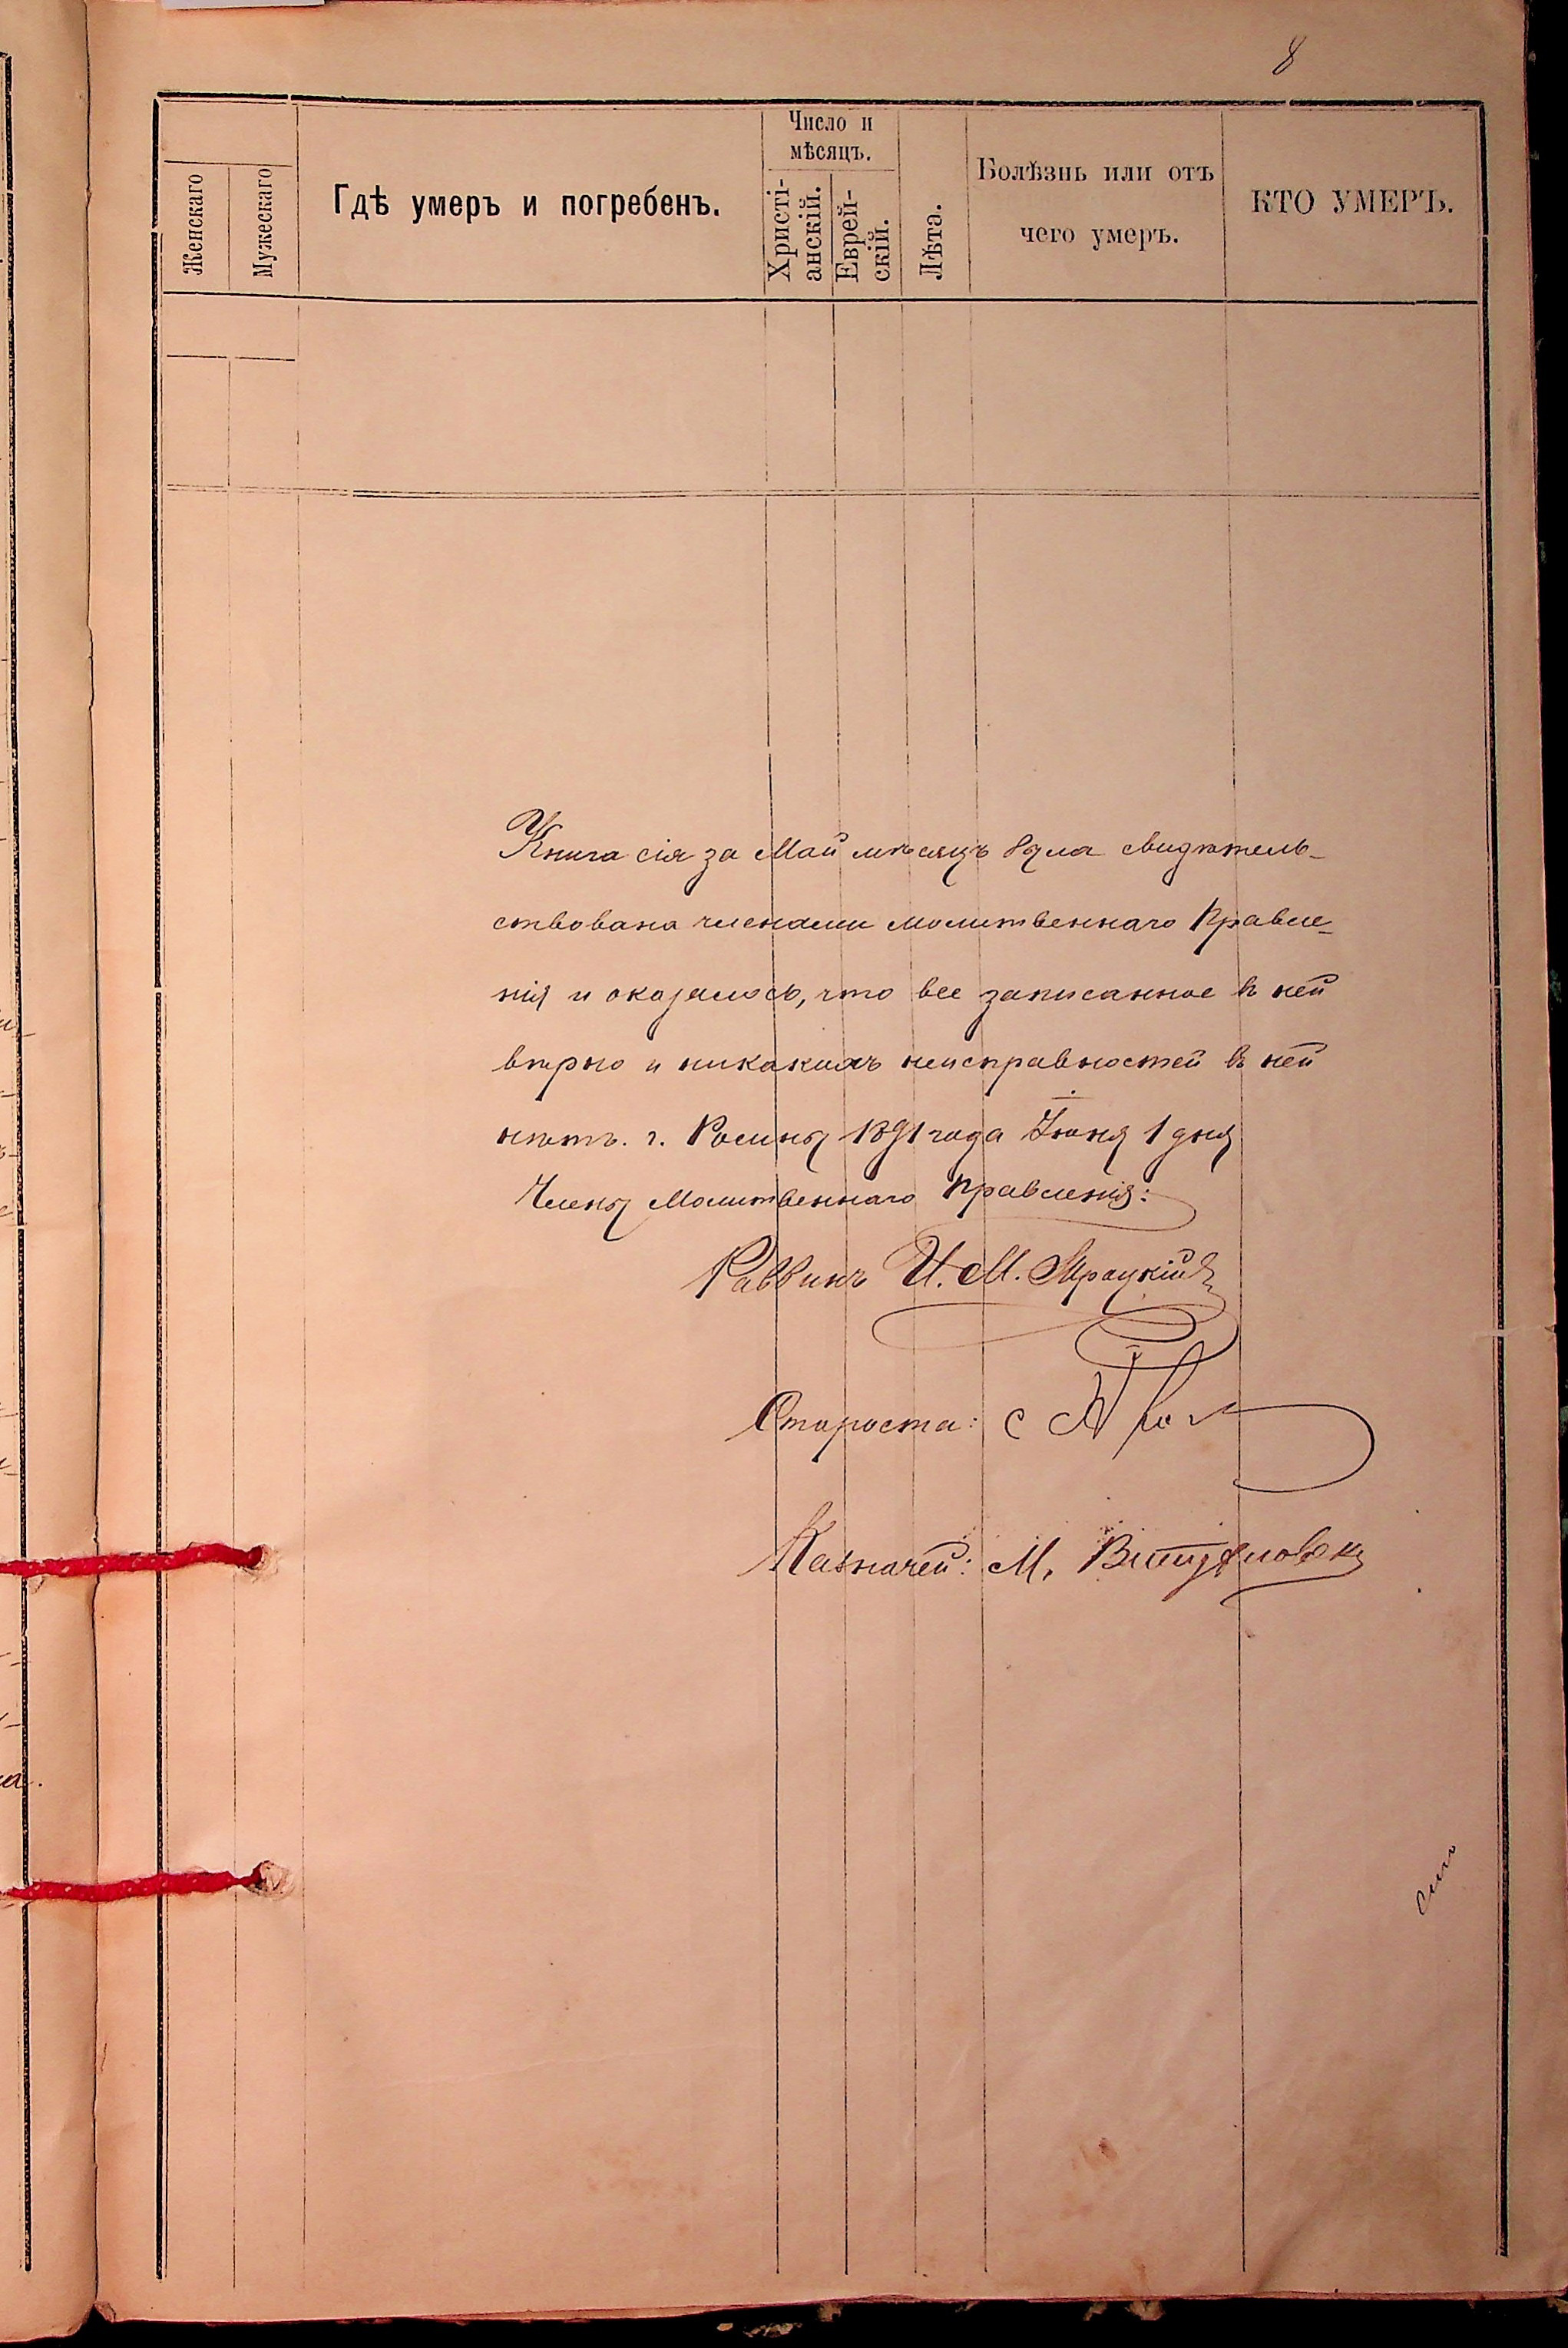 8
Женскаго
Мужескаго
Гдѣ умеръ и погребенъ.
Число и
мѣсяцъ.
Христі-
анскій.
Еврей-
скій.
Лѣта.
Болѣзнь или отъ
чего умеръ.
КТО УМЕРЪ.
Книга сія за Май мѣсяцъ была свидѣтель-
ствована членами молитвеннаго Правле-
нія и оказалось, что все записанное въ ней
вѣрно и никакихъ неисправностей въ ней
нѣтъ. г. Россіены 1891 года Іюня 1 дня
Члены Молитвеннаго Правленія:
Раввинъ И. М.
Староста:
Казначей: М.